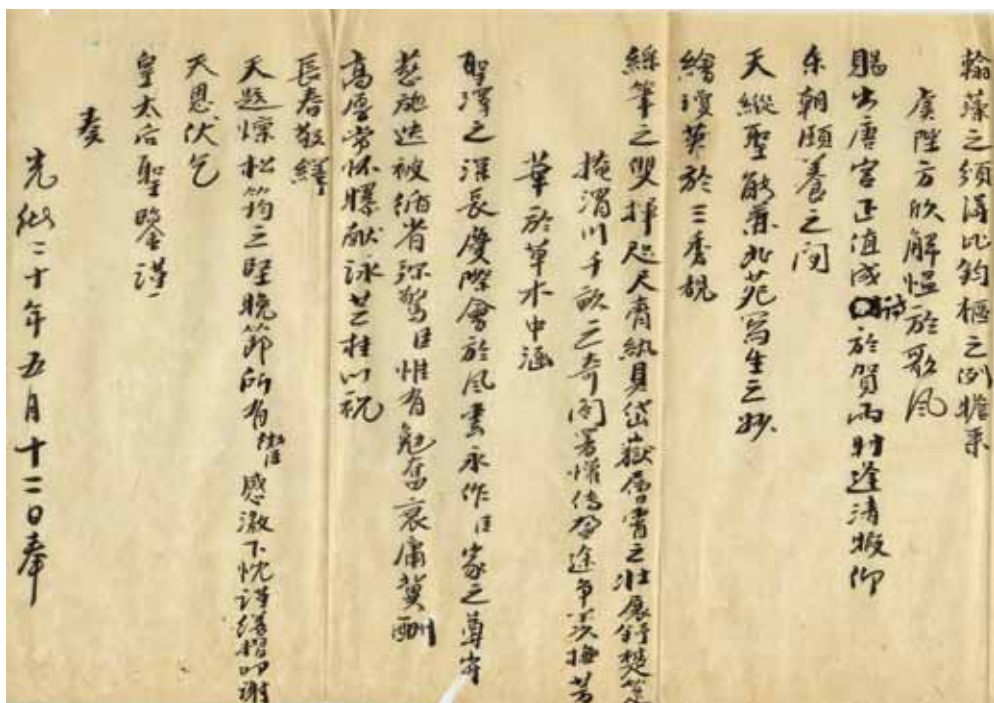 翰藻之頒溥比鈞樞之例瞻采
虞陛方欣解慍於歌風
賜出唐宮正值成詩於賀雨時逢清暇仰
東朝頤養之閒
天縱聖能兼北苑寫生之妙
繪瓊英於三秀靚
綵筆之雙揮咫尺齊紈具岱嶽層霄之壯展舒楚箑
掩渭川千畝之奇閭署懽傳郊途爭羨撫芳
華於草木中涵
聖澤之深長慶際會於風雲永作臣家之尊寄
慈施迭被循省深慙臣惟有勉奮衷庸冀酬
高厚常怀朦獻詠芝桂以祝
長春敬繹
天題懍松筠之堅晚節所有微臣感激下忱謹繕摺叩謝
天恩伏乞
皇太后聖鑒謹
奏
光緒二十年五月十二日奉